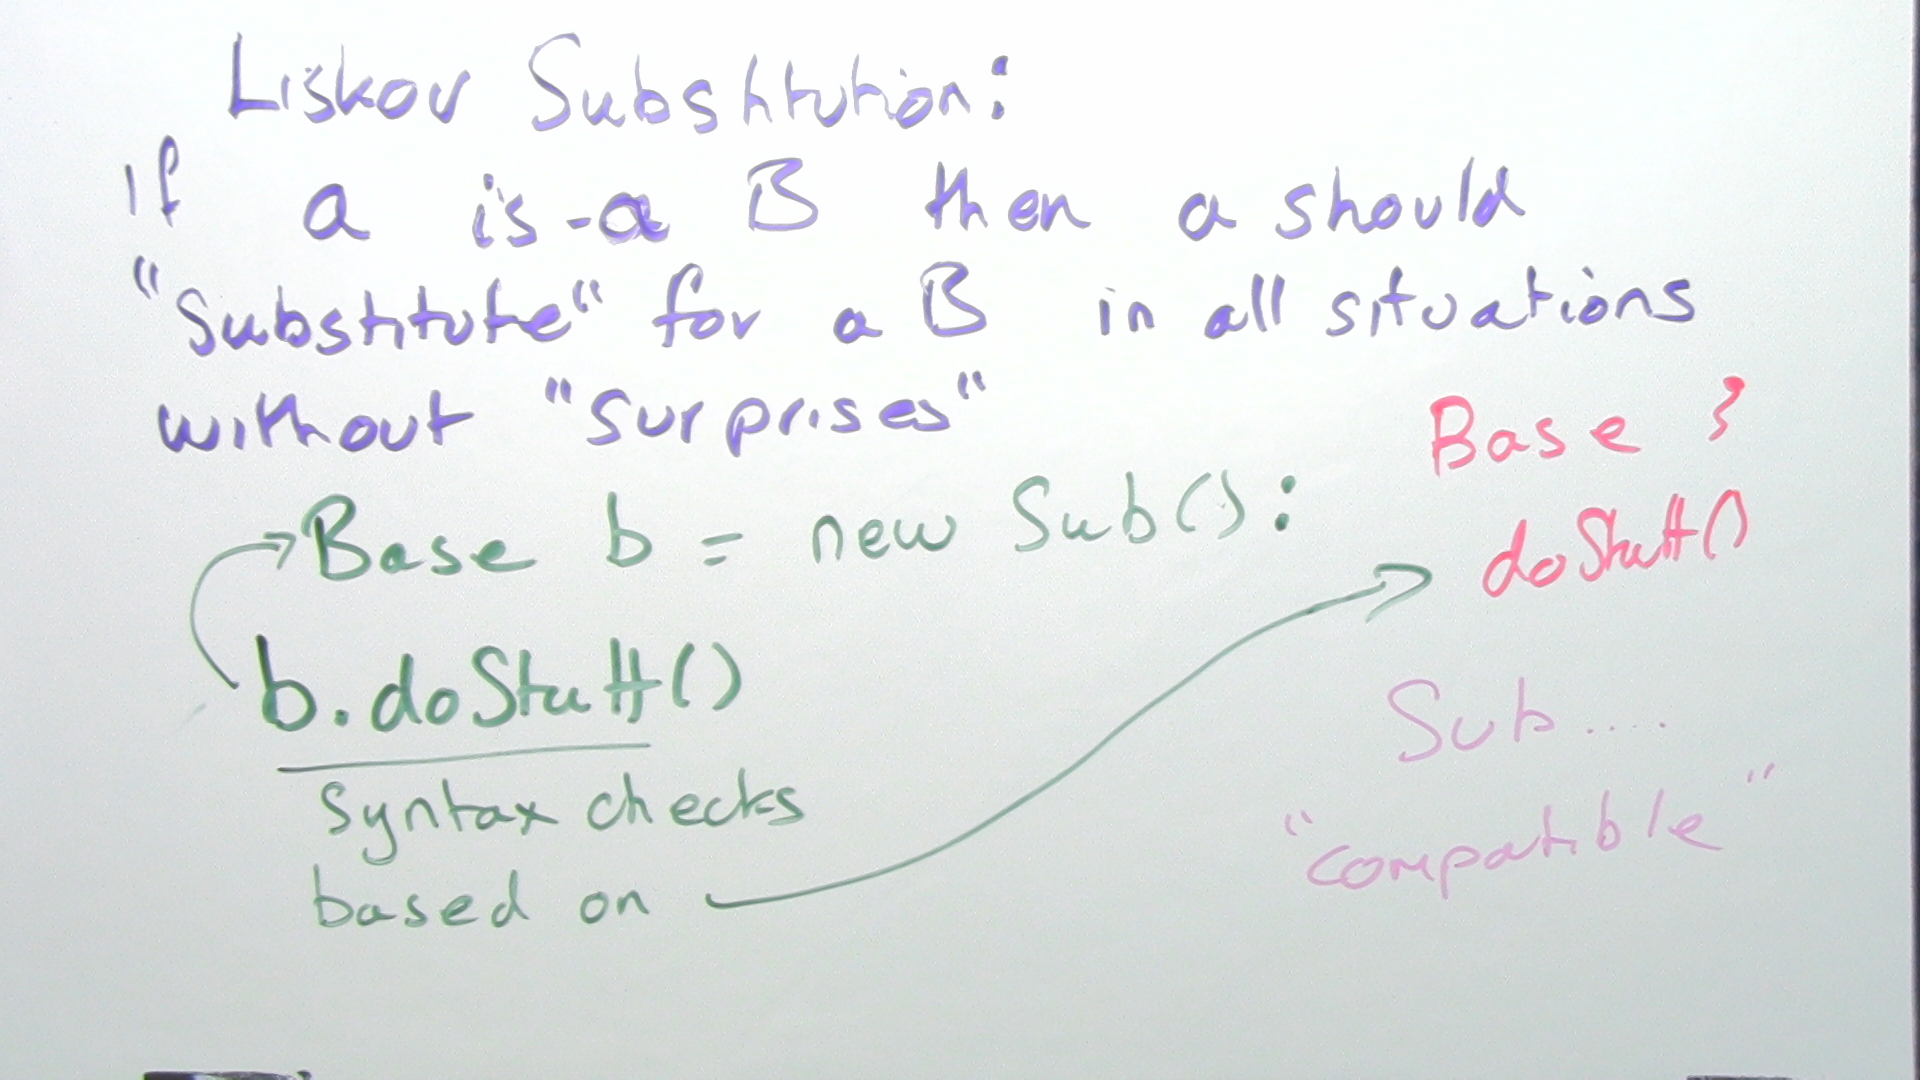 Liskov Substitution:
If a is-a B then a should
"Substitute" for a B in all situations
without "surprises"
Base b = new Sub():
b.doStuff()
syntax checks
based on
Base {
doStuff()
Sub....
"compatible"